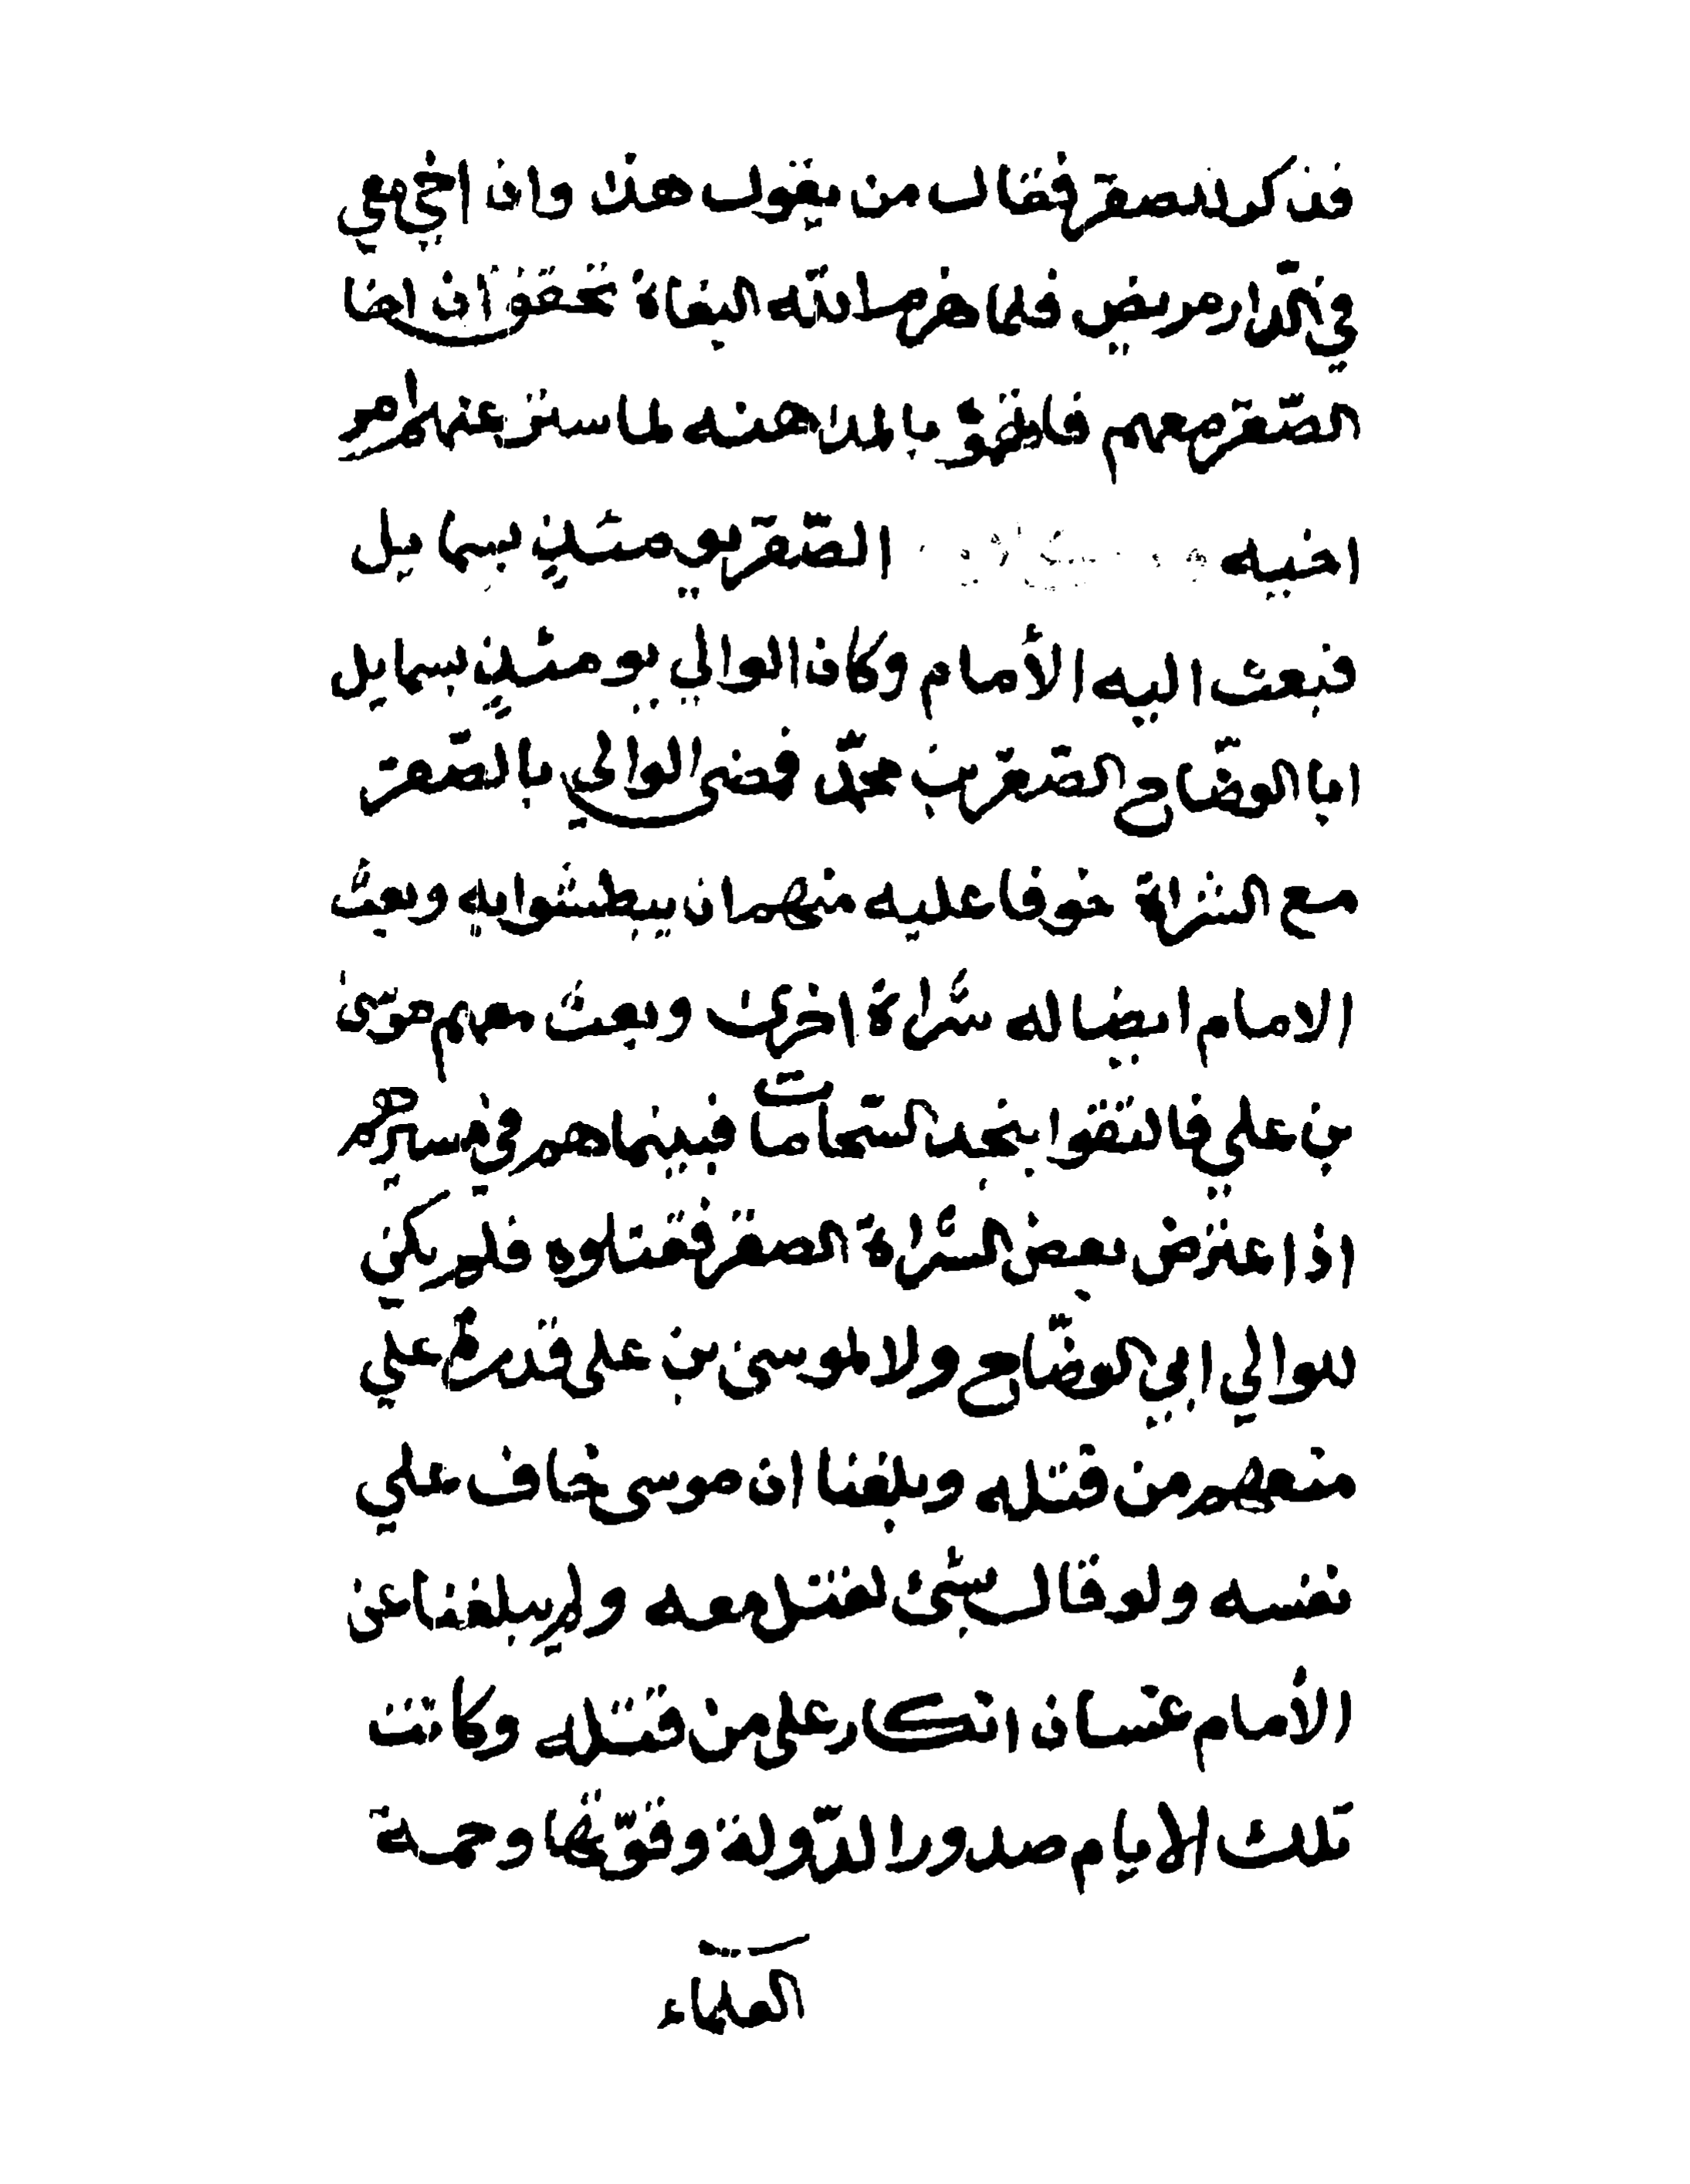 فذكر للصقر فقال من يقول هذا وان اخي معي
في الدار مريض فلما هزم الله البغاة تحقق ان اخا
الصقر معهم فاتهموه بالمداهنه لما ستر عنهم امر
اخيه الصقر يومئذ بسمايل
فبعث اليه الأمام وكان الوالي يومئذ بسمايل
ابا الوضاح الصقر بن محمد فمضى الوالي بالصقر
مع الشراة خوفا عليه منهم ان يبطشوا به وبعث
الامام ايضا له شراة اخرى وبعث معهم موسى
بن علي فالتقوا بنجد السحامات فبينما هم في مسيرهم
اذا عترض بعض الشراة الصقر فقتلوه فلم يكن
للوالي ابي الوضاح ولا لموسى بن على قدرة علي
منعهم من قتله وبلغنا ان موسى خاف علي
نفسه ولو قال بشئ لقتل معه ولم يبلغنا عن
الأمام غسان انكار على من قتله وكانت
تلك الايام صدور الدولة وقوتها وجمة
العلماء